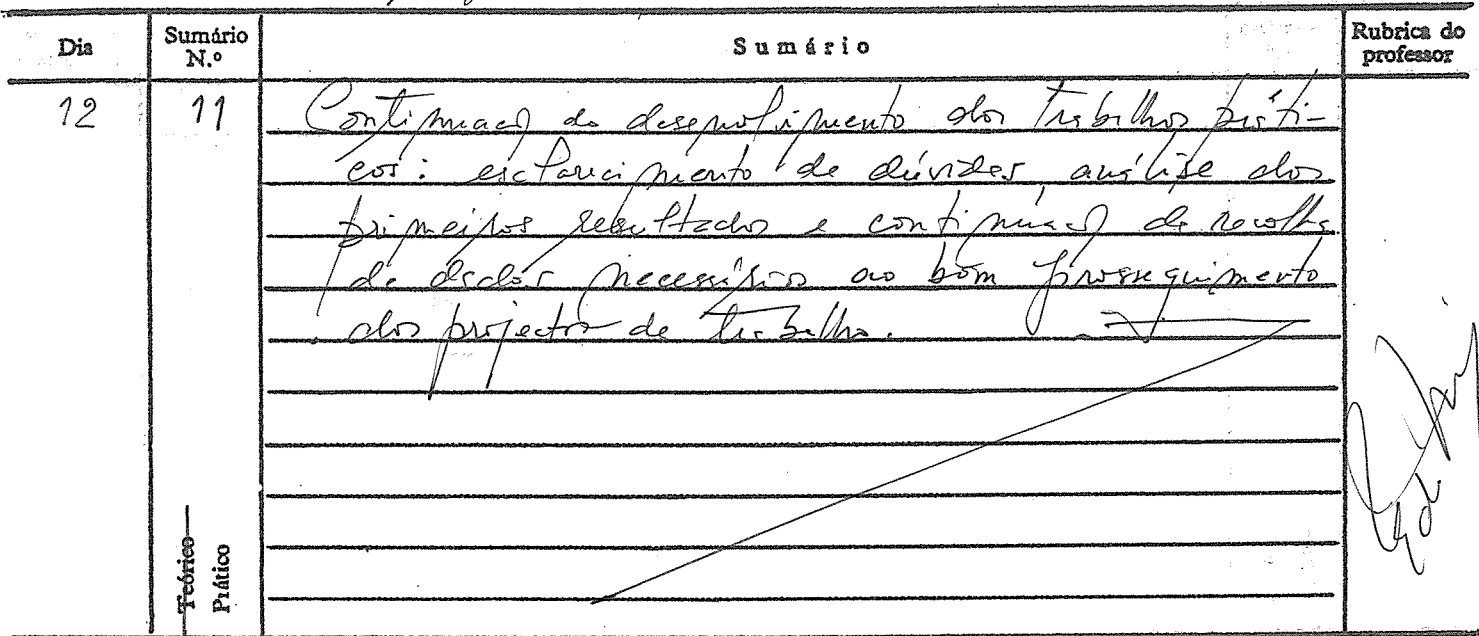 Dia
Sumário N.º
Sumário
Rubrica do professor
12
11
Continuação do desenvolvimento dos trabalhos práti-
cos: esclarecimento de dúvidas, análise dos
primeiros resultados e continuação da recolha
de dados necessários ao bom prosseguimento
dos projectos de trabalho.
Teórico
Prático